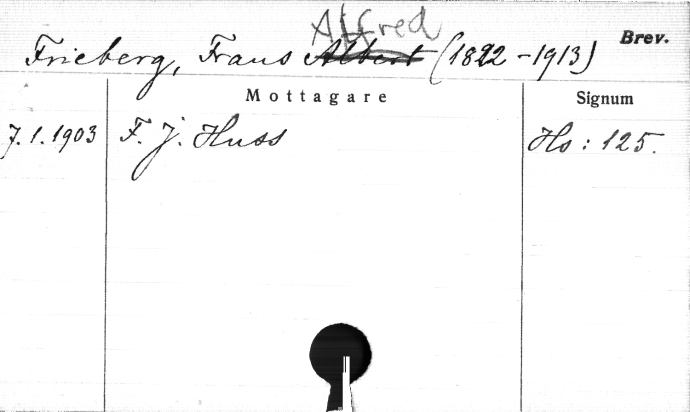 Alfred
Frieberg, Frans Albert (1822-1913) Brev.
Mottagare Signum
7.1.1903 F. J. Huss Hs: 125.